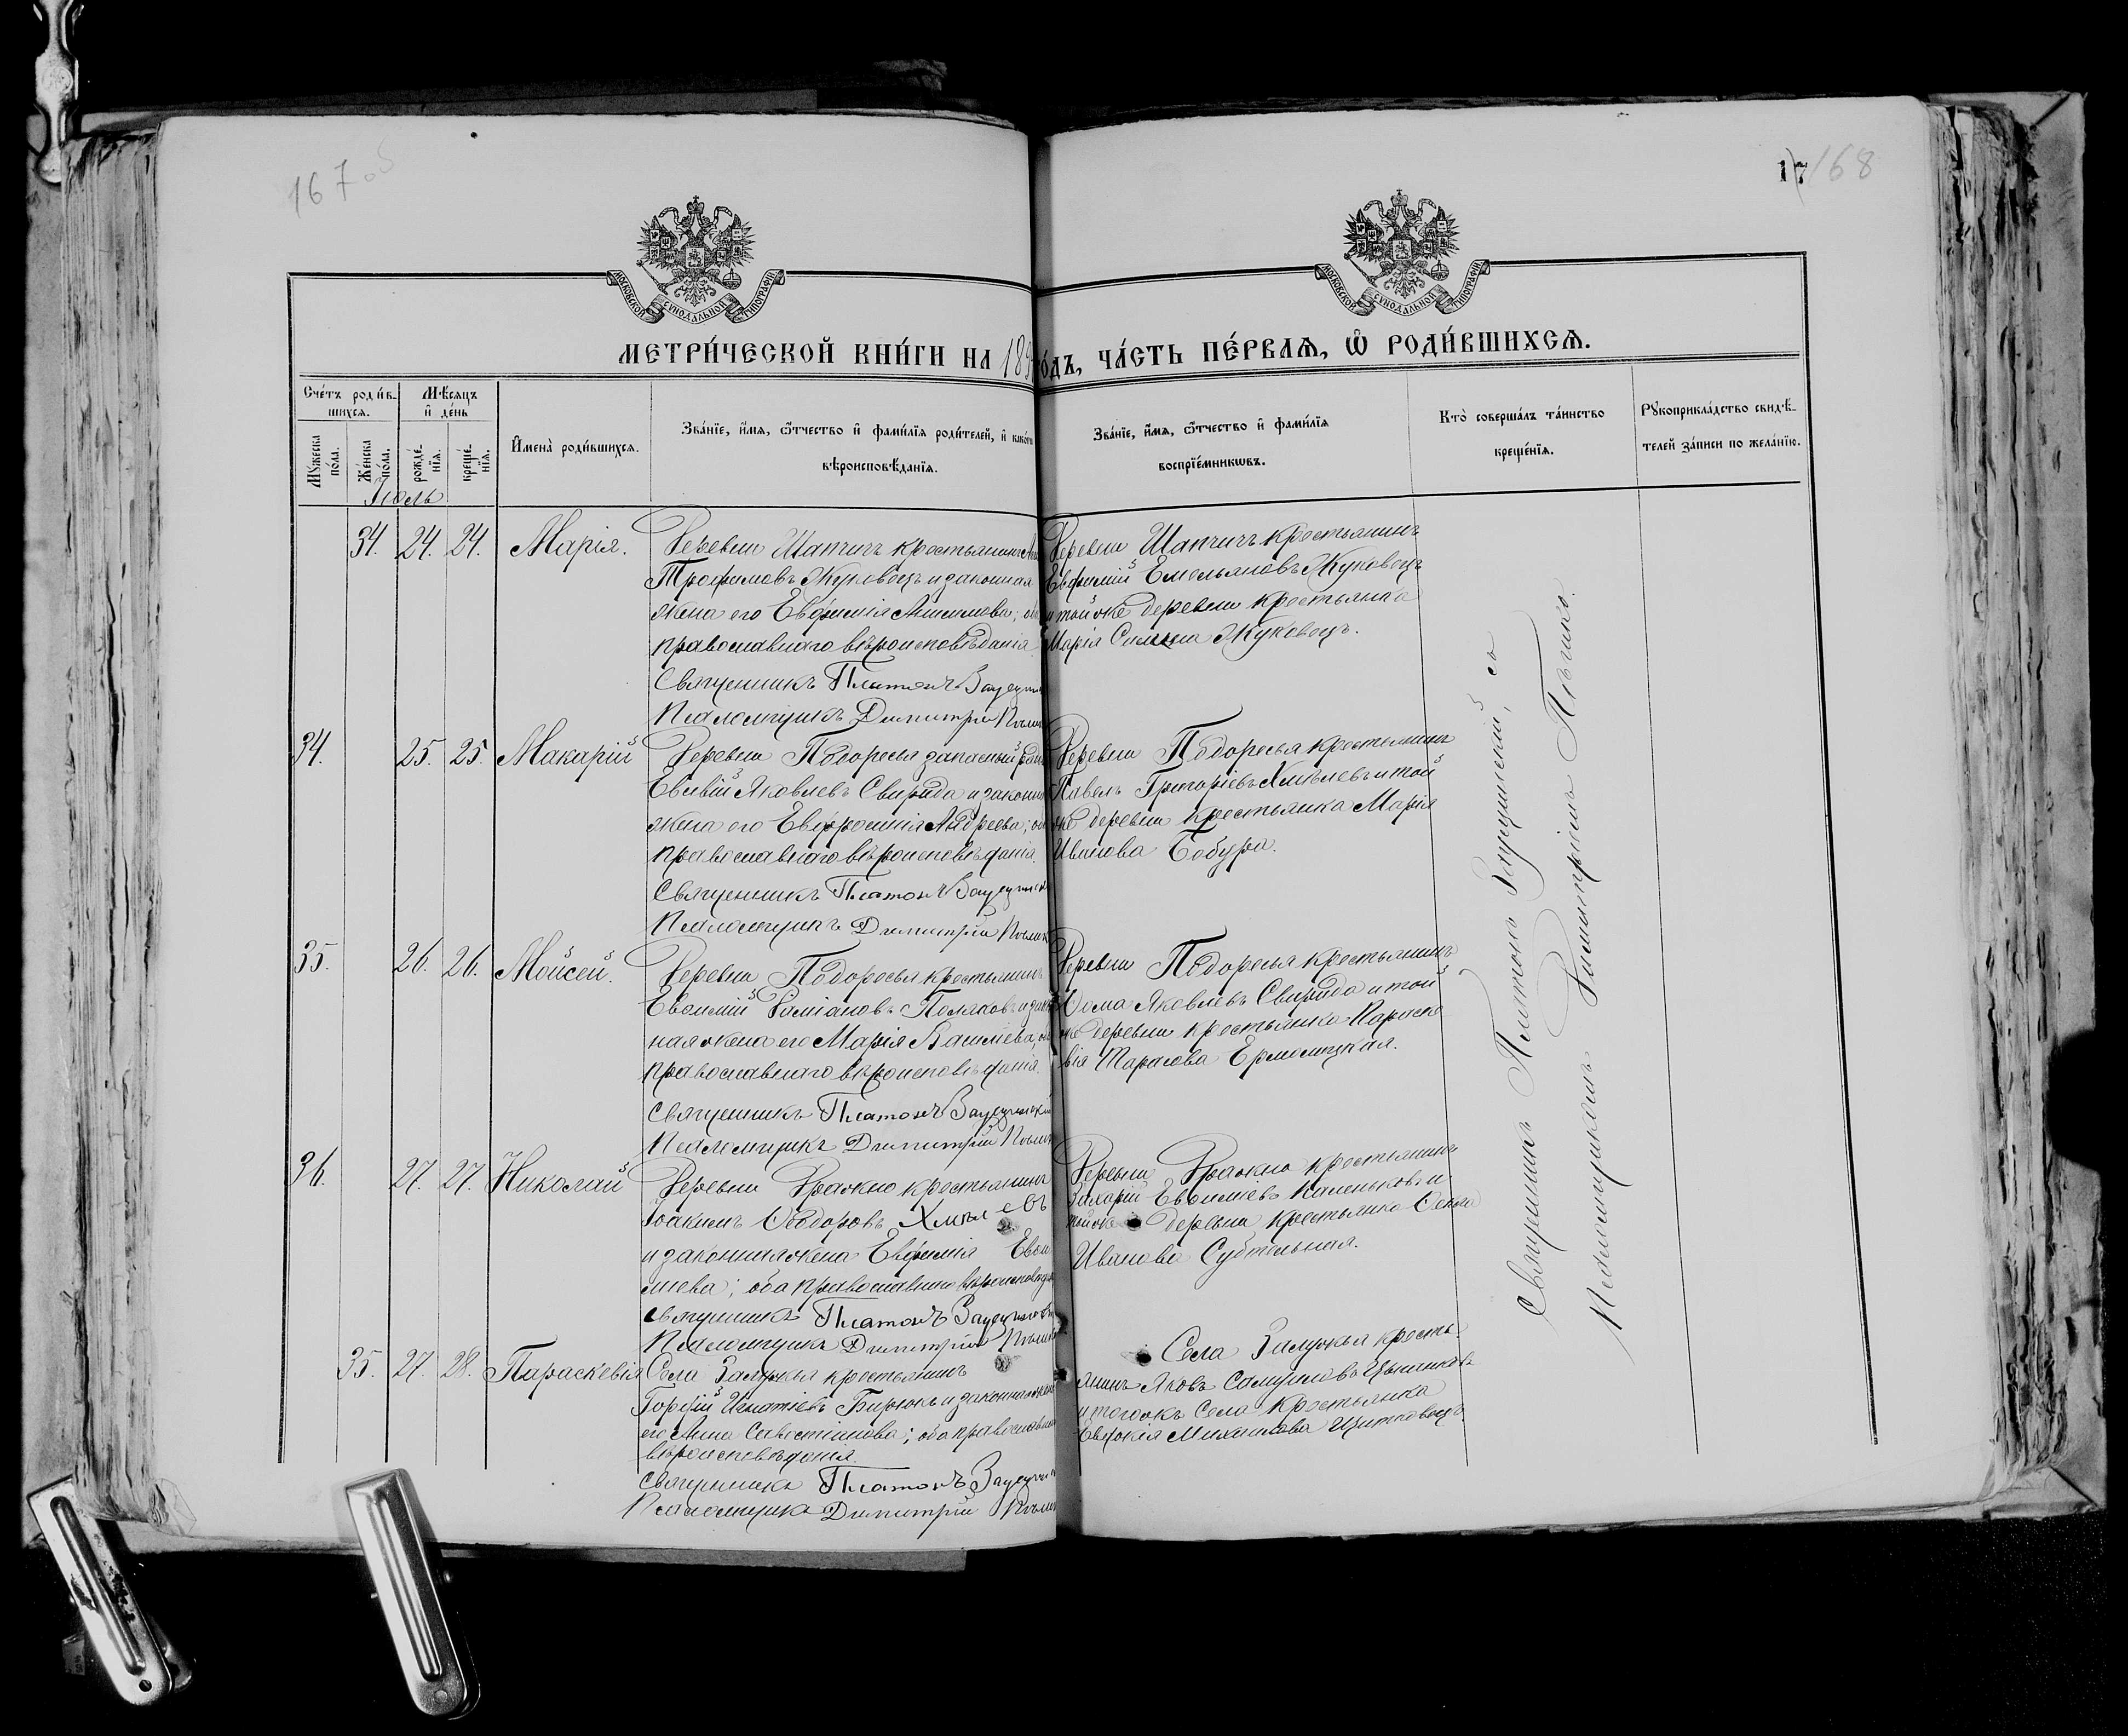 167 об
17 168
МОСКОВСКОЙ СУНОДАЛЬНОЙ ТИПОГРАФІИ
МОСКОВСКОЙ СУНОДАЛЬНОЙ ТИПОГРАФІИ
МЕТРИ́ЧЕСКОЙ КНИ́ГИ НА 189 ГО́ДЪ, ЧА́СТЬ ПЕ́РВАѦ, Ѡ РОДИ́ВШИХСѦ.
Сче́тъ роди́в-
шихсѧ.
Мѣ́сѧцъ
и де́нь
Мꙋжеска по́ла.
Же́нска по́ла.
рожде́-
нїѧ.
креще́-
нїѧ.
Имена̀ роди́вшихсѧ.
Зва́нїе, и́мѧ, о́тчество и фами́лїѧ роди́телей, и како́гѡ
вѣроисповѣ́данїѧ.
Зва́нїе, и́мѧ, о́тчество и фами́лїѧ
воспрїе́мникѡвъ.
Кто̀ соверша́лъ та́инство
креще́нїѧ.
Рꙋкоприкла́дство свидѣ́-
телей за́писи по жела́нїю.
Іюль
34. 24. 24. Марія.
Деревни Шапчигъ крестьянинъ
Трофимовъ Жуковецъ и законная
жена его Евфимія Анисимова;
православнаго вѣроисповѣданія
Священникъ Платонъ
Псаломщикъ Димитрій
Деревни Шапчигъ крестьянинъ
Евфимій Емельяновъ Жуковецъ
и той же деревни крестьянка
Марія Жуковецъ.
34. 25. 25. Макарій
Деревни Подоресья запасный
Евсевій Яковлевъ Свирида и законная
жена его Евфросинія Андреева;
православнаго вѣроисповѣданія.
Священникъ Платонъ
Псаломщикъ Димитрій
Деревни Подоресья крестьянинъ
Павелъ Григоріевъ Хмѣлевъ и той
же деревни крестьянка Марія
Иванова Бобура.
35. 26. 26. Мойсей.
Деревни Подоресья крестьянинъ
Евфимій Даміановъ Поляковъ и закон
ная жена его Марія Василіева,
православнаго вѣроисповѣданія.
Священникъ Платонъ
Псаломщикъ Димитрій
Деревни Подоресья крестьянинъ
Ѳома Яковлевъ Свирида и той
же деревни крестьянка Параске
вія Тарасова Ермолицкая.
36. 27. 27. Николай
Деревни Дражно крестьянинъ
Іоакимъ Ѳеодоровъ Хмѣлевъ
и законная жена Евфимія Евѳи
міева; оба православнаго вѣроисповѣд
Священникъ Платонъ
Псаломщикъ Димитрій
Деревни Дражно крестьянинъ
Захарій Евѳиміевъ Каленьковъ и
той же деревни крестьянка
Иванова Субтельная.
35. 27. 28. Параскевія
Села Залужья крестьянинъ
Гордій Игнатіевъ Бирюкъ и законная жена
его Анна Севастіанова; оба православнаго
вѣроисповѣданія.
Священникъ Платонъ
Псаломщикъ Димитрій
Села Залужья кресть-
янинъ Яковъ Самуиловъ
и того же села крестьянка
Евдокія Михаилова
Священникъ Платонъ Заусцинскій, съ
Псаломщикомъ Димитріемъ